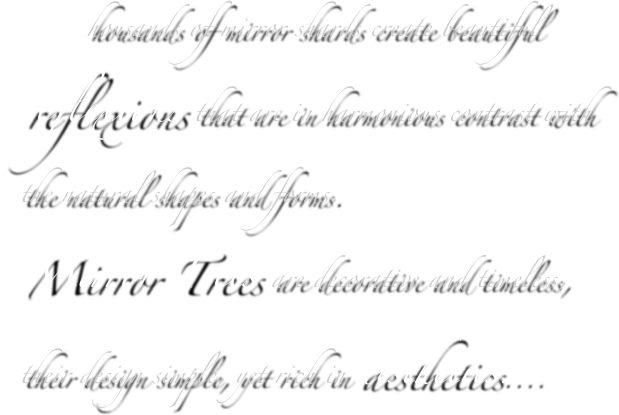 housands of mirror shards create beautiful
reflexions that are in harmonious contrast with
the natural shapes and forms.
Mirror Trees are decorative and timeless,
their design simple, yet rich in aesthetics....